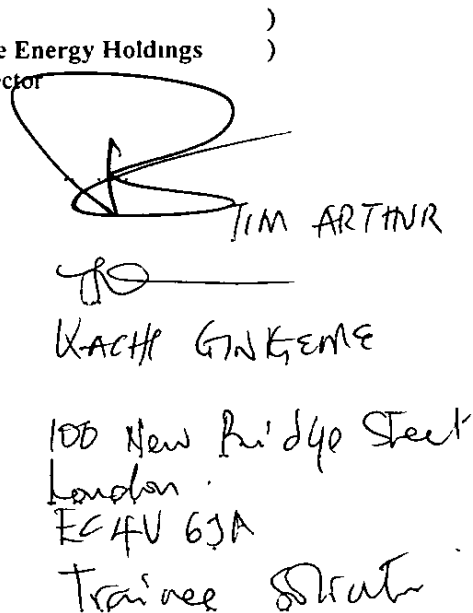 )
e Energy Holdings )
ector
TIM ARTHUR
KACHI
100 New Bridge Street
London.
EC4V 6JA
Trainee Solicitor